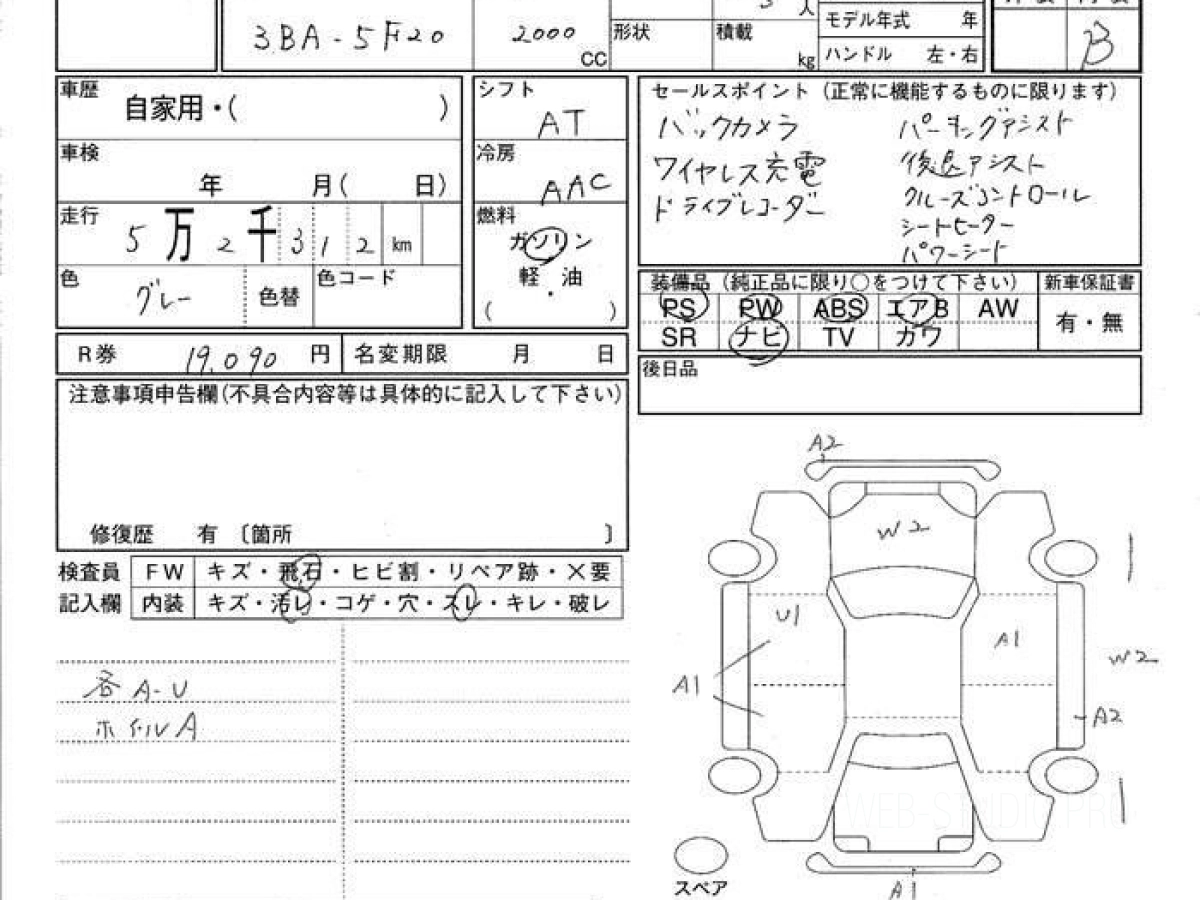 3BA-5F20 2000 CC 形状 人 積載 kg モデル年式 年
ハンドル 左・右 B
車歴 自家用・( )
シフト AT
セールスポイント (正常に機能するものに限ります)
バックカメラ パーキングアシスト
車検 年 月( 日)
冷房 AAC
ワイヤレス充電 後退アシスト
ドライブレコーダー クルーズコントロール
シートヒーター
パワーシート
走行 5万2千312km
燃料 ガソリン
軽・油
( )
色 グレー 色替 色コード
装備品 (純正品に限り○をつけて下さい) 新車保証書
PS PW ABS エアB AW 有・無
SR ナビ TV カワ
R券 19,090 円 名変期限 月 日
後日品
注意事項申告欄(不具合内容等は具体的に記入して下さい)
修復歴 有 〔箇所 〕
検査員 FW キズ・飛石・ヒビ割・リペア跡・×要
記入欄 内装 キズ・汚レ・コゲ・穴・スレ・キレ・破レ
各A-U
ホイルA
A2
W2
U1
A1
A1
W2
A2
WEB-STUDIO.PRO
スペア
A1